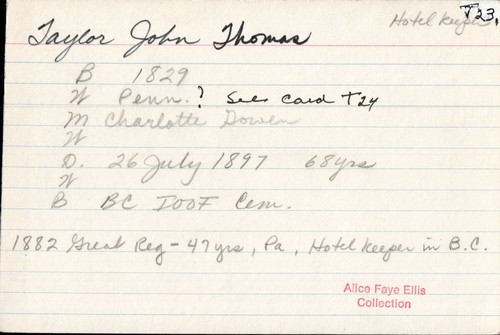 Hotel keeper T23.
Taylor John Thomas
B 1829
W Penn. ? See card T24
M Charlotte Dowen
W
D. 26 July 1897 68yrs
W
B BC IOOF Cem.
1882 Great Reg - 47 yrs, Pa, Hotel Keeper in B.C.
Alice Faye Ellis
Collection